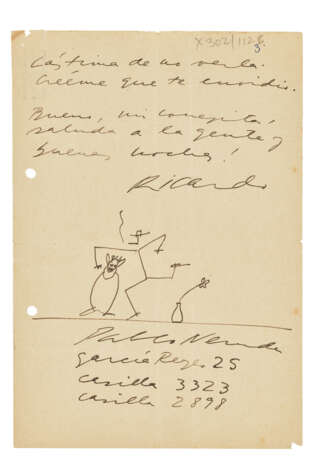 X-302/1126
3
Lástima de no verla.
Créeme que te envidio.
Bueno, mi conejita,
saluda a la gente y
buenas noches!
Ricardo
Pablo Neruda
García Reyes 25
casilla 3323
casilla 2898